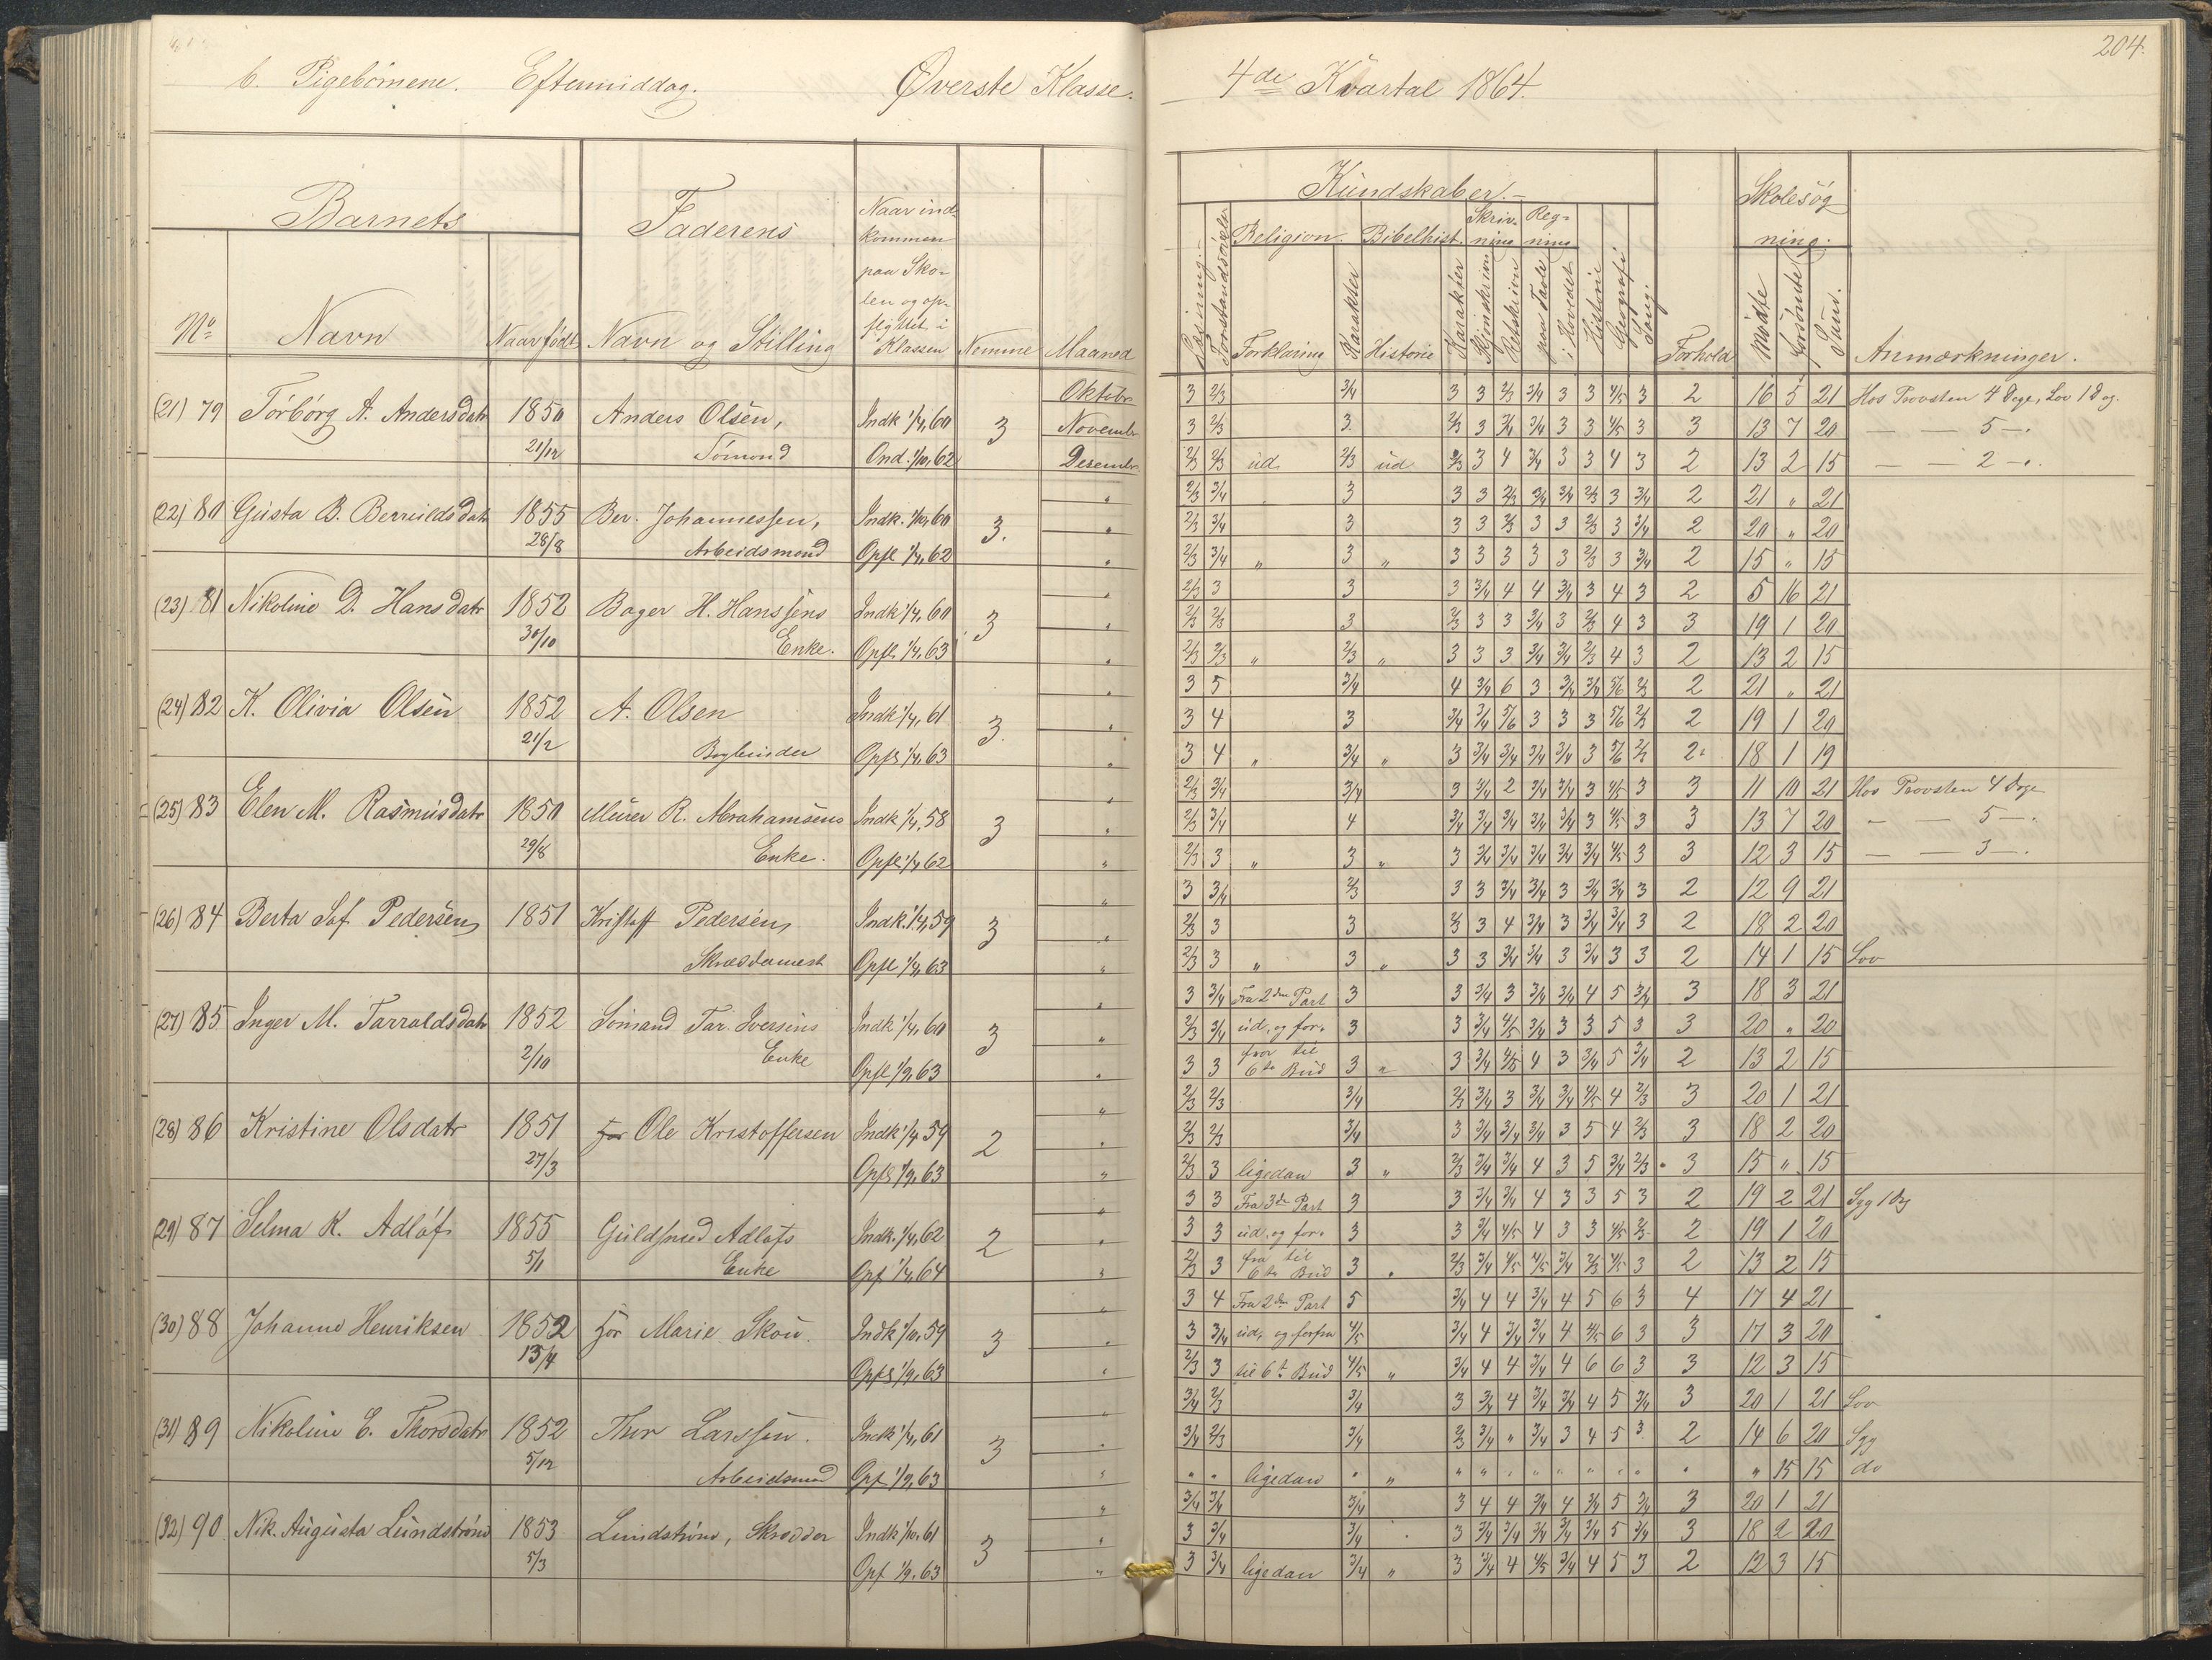 b. Pigebörnene. Eftermiddag. Øverste Klasse.
4de Kvartal 1864.
204.
Barnets
Faderens
Naar ind-
kommen
paa Sko-
len og op-
flyttet i
Klassen
No
Navn
Naar født
Navn og Stilling
Nemme
Maaned
Kundskaber.
Religion. Bibelhist. Skriv-
ning Reg-
ning
Forklaring
Karakter
Historie
Karakter
Retskrivn
paa Tavle
i Hovedet
Historie
Geografi
Sang.
Forhold
Skolesøg
ning.
Mødte
forsømte
Sum.
Anmærkninger.
(21) 79 Torborg A. Andersdatr 1850 Anders Olsen, Indk 1/4, 60 3 Oktobr
21/12 Sømand Ond. 1/10, 62 Novembr
Desembr
3 2/3 3/4 3 3 2/3 3/4 3 3 4/5 3 2 16 5 21 Hos Provsten 4 Dage, Lov 1 Dag.
3 2/3 3 2/3 3 3/4 3/4 3 3 4/5 3 3 13 7 20 — — 5 —.
2/3 2/3 ud 2/3 ud 2/3 3 4 3/4 3 3 4 3 2 13 2 15 — — 2 —.
(22) 80 Gusta B. Berruldsdatr 1855 Ber. Johannessen, Indk. 1/10, 60 3.
28/8 Arbeidsmand Opfl 1/4, 62
2/3 3/4 3 3 3 2/3 3/4 3/4 2/3 3 3/4 2 21 " 21
2/3 3/4 3 3 3 2/3 3 3 2/3 3 3/4 2 20 " 20
2/3 3/4 " 3 " 3 3 3 3 3 2/3 3 3/4 2 15 " 15
(23) 81 Nikoline D. Hansdatr 1852 Bager H. Hanssens Indk 1/4, 60 3
30/10 Enke. Opfl. 1/4, 63
2/3 3 3 3 3/4 4 4 3/4 3 4 3 2 5 16 21
2/3 2/3 3 2/3 3 3 3/4 3 2/3 4 3 3 19 1 20
2/3 2/3 " 2/3 " 3 3 3 3/4 3/4 2/3 4 3 2 13 2 15
(24) 82 K. Olivia Olsen 1852 A. Olsen Indk 1/4, 61 3.
21/2 Bogbinder Opfl 1/4, 63
3 5 3/4 4 3/4 6 3 3/4 3/4 5/6 2/3 2 21 " 21
3 4 3 3/4 3/4 5/6 3 3 3 5/6 2/3 2 19 1 20
3 4 " 3/4 " 3 3/4 3/4 3/4 3/4 3 5/6 2/3 2 18 1 19
(25) 83 Elen M. Rasmusdatr 1850 Murer R. Abrahamsens Indk 1/4, 58 3
29/8 Enke. Opfl. 1/4, 62
2/3 3/4 3/4 3 3/4 2 3/4 3/4 3 4/5 3 3 11 10 21 Hos Provsten 4 Dage
2/3 3/4 4 3/4 3/4 3/4 3/4 3/4 3 4/5 3 3 13 7 20 — — 5 —.
2/3 3 " 3 " 3 3/4 3/4 3/4 3/4 3/4 4/5 3 3 12 3 15 — — 3 —.
(26) 84 Berta Sof. Pedersen 1851 Kristoff Pedersen, Indk. 1/4, 59 3
Skræddermest Opfl 1/4, 63
3 3/4 2/3 3 3 3/4 3/4 3 3/4 3/4 3 2 12 9 21
2/3 3 3 2/3 3 4 3/4 3 3/4 3/4 3 2 18 2 20
2/3 3 " 3 " 3 3 3/4 3/4 3 3/4 3 3 2 14 1 15 Lov
(27) 85 Inger M. Tarraldsdatr 1852 Sømand Tar. Iversens Indk 1/4, 60 3
2/10 Enke Opfl 1/9, 63
3 3/4 Fra 2den Part 3 3 3/4 3 3/4 3/4 4 5 3/4 3 18 3 21
2/3 3/4 ud, og for- 3 3 3/4 4/5 3/4 3 3 5 3 3 20 " 20
3 3 fra til 6te Bud 3 " 3 3/4 4/5 4 3 3/4 5 3/4 2 13 2 15
(28) 86 Kristine Olsdatr 1851 For Ole Kristoffersen Indk 1/4, 59 2
27/3 Opfl 1/9, 63
2/3 2/3 3/4 2/3 3/4 3 3/4 3/4 4/5 4 2/3 3 20 1 21
2/3 2/3 3/4 3 3/4 3/4 3/4 3 5 4 2/3 3 18 2 20
2/3 3 ligedan 3 " 2/3 3/4 3/4 4 3 5 3/4 2/3 3 15 " 15
(29) 87 Selma K. Adlof 1855 Guldsmed Adlofs Indk. 1/4, 62 2
5/1 Enke Opf 1/4, 64
3 3 Fra 3de Part 3 3 3/4 3/4 4 3 3 5 3 2 19 2 21 Syg 1 Dg
3 3 ud, og for- 3 3 3/4 4/5 4 3 3 4/5 2/3 2 19 1 20
2/3 3 fra til 6te Bud 3 " 2/3 3/4 4/5 4/5 3/4 2/3 4/5 3 2 13 2 15
(30) 88 Johanne Henriksen 1852 For Marie Skou. Indk 1/10, 59 3
13/4 Opfl 1/9, 63
3 4 Fra 2den Part 5 3/4 4 4 3/4 4 5 6 3 4 17 4 21
3 3/4 ud, og forfra 4/5 3/4 4 3/4 3/4 4 4/5 6 3 3 17 3 20
2/3 3 til 6t Bud 4/5 " 3/4 4 4 3/4 4 6 6 3 3 12 3 15
(31) 89 Nikoline E. Thorsdatr 1852 Thor Larssen. Indk 1/4, 61 3
5/12 Arbeidsmand Opf 1/9, 63
3/4 2/3 3/4 3 3/4 4 3/4 3/4 4 5 3/4 3 20 1 21 Lov
3/4 2/3 3/4 2/3 3/4 " 3/4 3 4 5 3 2 14 6 20 Syg
" " ligedan " " " " " " " " " " " " 15 15 do
(32) 90 Nik. Augusta Lundstrøm 1853 Lundstrøm, Skrædder Indk 1/10, 61 3
5/3 Opf 1/9, 63
3/4 3/4 3/4 3 4 4 3/4 4 3/4 5 3/4 3 20 1 21
3 3/4 3/4 3 3/4 3/4 3/4 3/4 3/4 5 3/4 3 18 2 20
3 3/4 ligedan 3/4 " 3 3/4 4 4/5 3/4 4 5 3 2 12 3 15